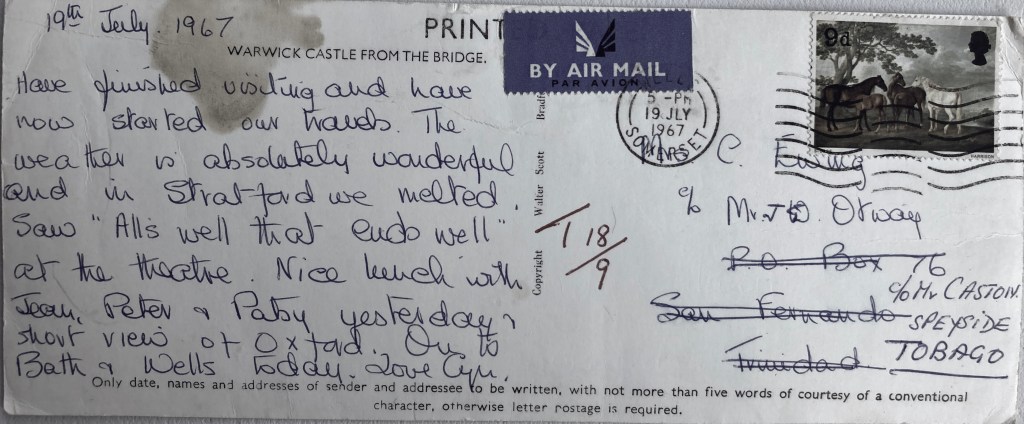 19th July. 1967
PRINT
WARWICK CASTLE FROM THE BRIDGE.
Have finished visiting and have
now started our travels. The
weather is absolutely wonderful
and in Stratford we melted.
Saw "Alls well that ends well"
at the theatre. Nice lunch with
Jean, Peter & Patsy yesterday,
short view of Oxford. On to
Bath & Wells today. Love Cyn.
BY AIR MAIL
PAR AVION
Copyright Walter Scott Bradf
T 18/9
5 - PM
19 JLY
1967
SOMERSET
9d
HARRISON
C. Ewing
c/o Mr. & D. Otway
P.O. Box 76
San Fernando
Trinidad
c/o Mr CASTON.
SPEYSIDE
TOBAGO
Only date, names and addresses of sender and addressee to be written, with not more than five words of courtesy of a conventional
character, otherwise letter postage is required.